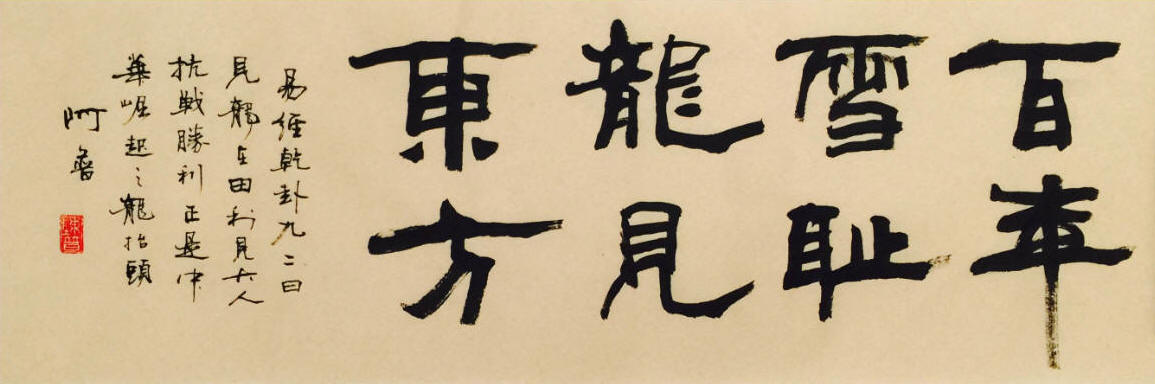 百年
雪耻
龍見
東方
易經乾卦九二曰
見龍在田利見大人
抗戦勝利正是中
華崛起之龍抬頭
阿普